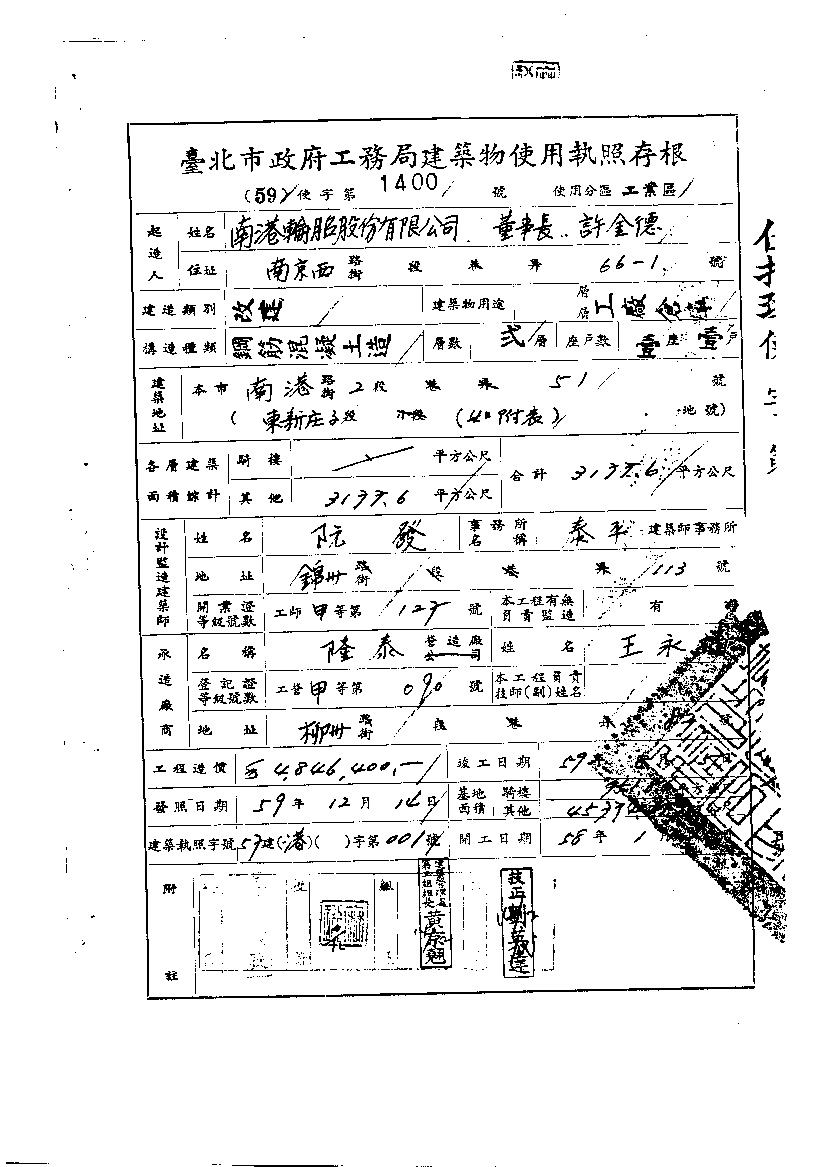 臺北市政府工務局建築物使用執照存根
(59)使字第 1400 號 使用分區 工業區
起造人 姓名 南港輪胎股份有限公司 董事長 許金德
住址 南京西 路街 段 巷 弄 66-1 號
建造類別 改建 建築物用途 層層 工廠倉庫
構造種類 鋼筋混凝土造 層數 弍層 座戶數 壹座 壹戶
建築地址 本市 南港 路街 2段 巷 弄 51 號
(東新庄子段 小段 (如附表) 地號)
各層建築面積綜計 騎樓 平方公尺 合計 3137.6 平方公尺
其他 3137.6 平方公尺
設計監造建築師 姓名 阮發 事務所名稱 泰平 建築師事務所
地址 錦州 路街 段 巷 弄 113 號
開業證等級號數 工師甲等第 127 號 本工程有無負責監造 有
承造廠商 名稱 隆泰 營造廠公司 姓名 王永
登記證等級號數 工營甲等第 090 號 本工程負責技師(副)姓名
地址 柳州 路街 段 巷 弄 號
工程造價 4,846,400.- 竣工日期 59年 月 日
發照日期 59年 12月 14日 基地面積 騎樓 平方公尺
其他
建築執照字號 57建(港)( )字第001號 開工日期 58年 1月
附註